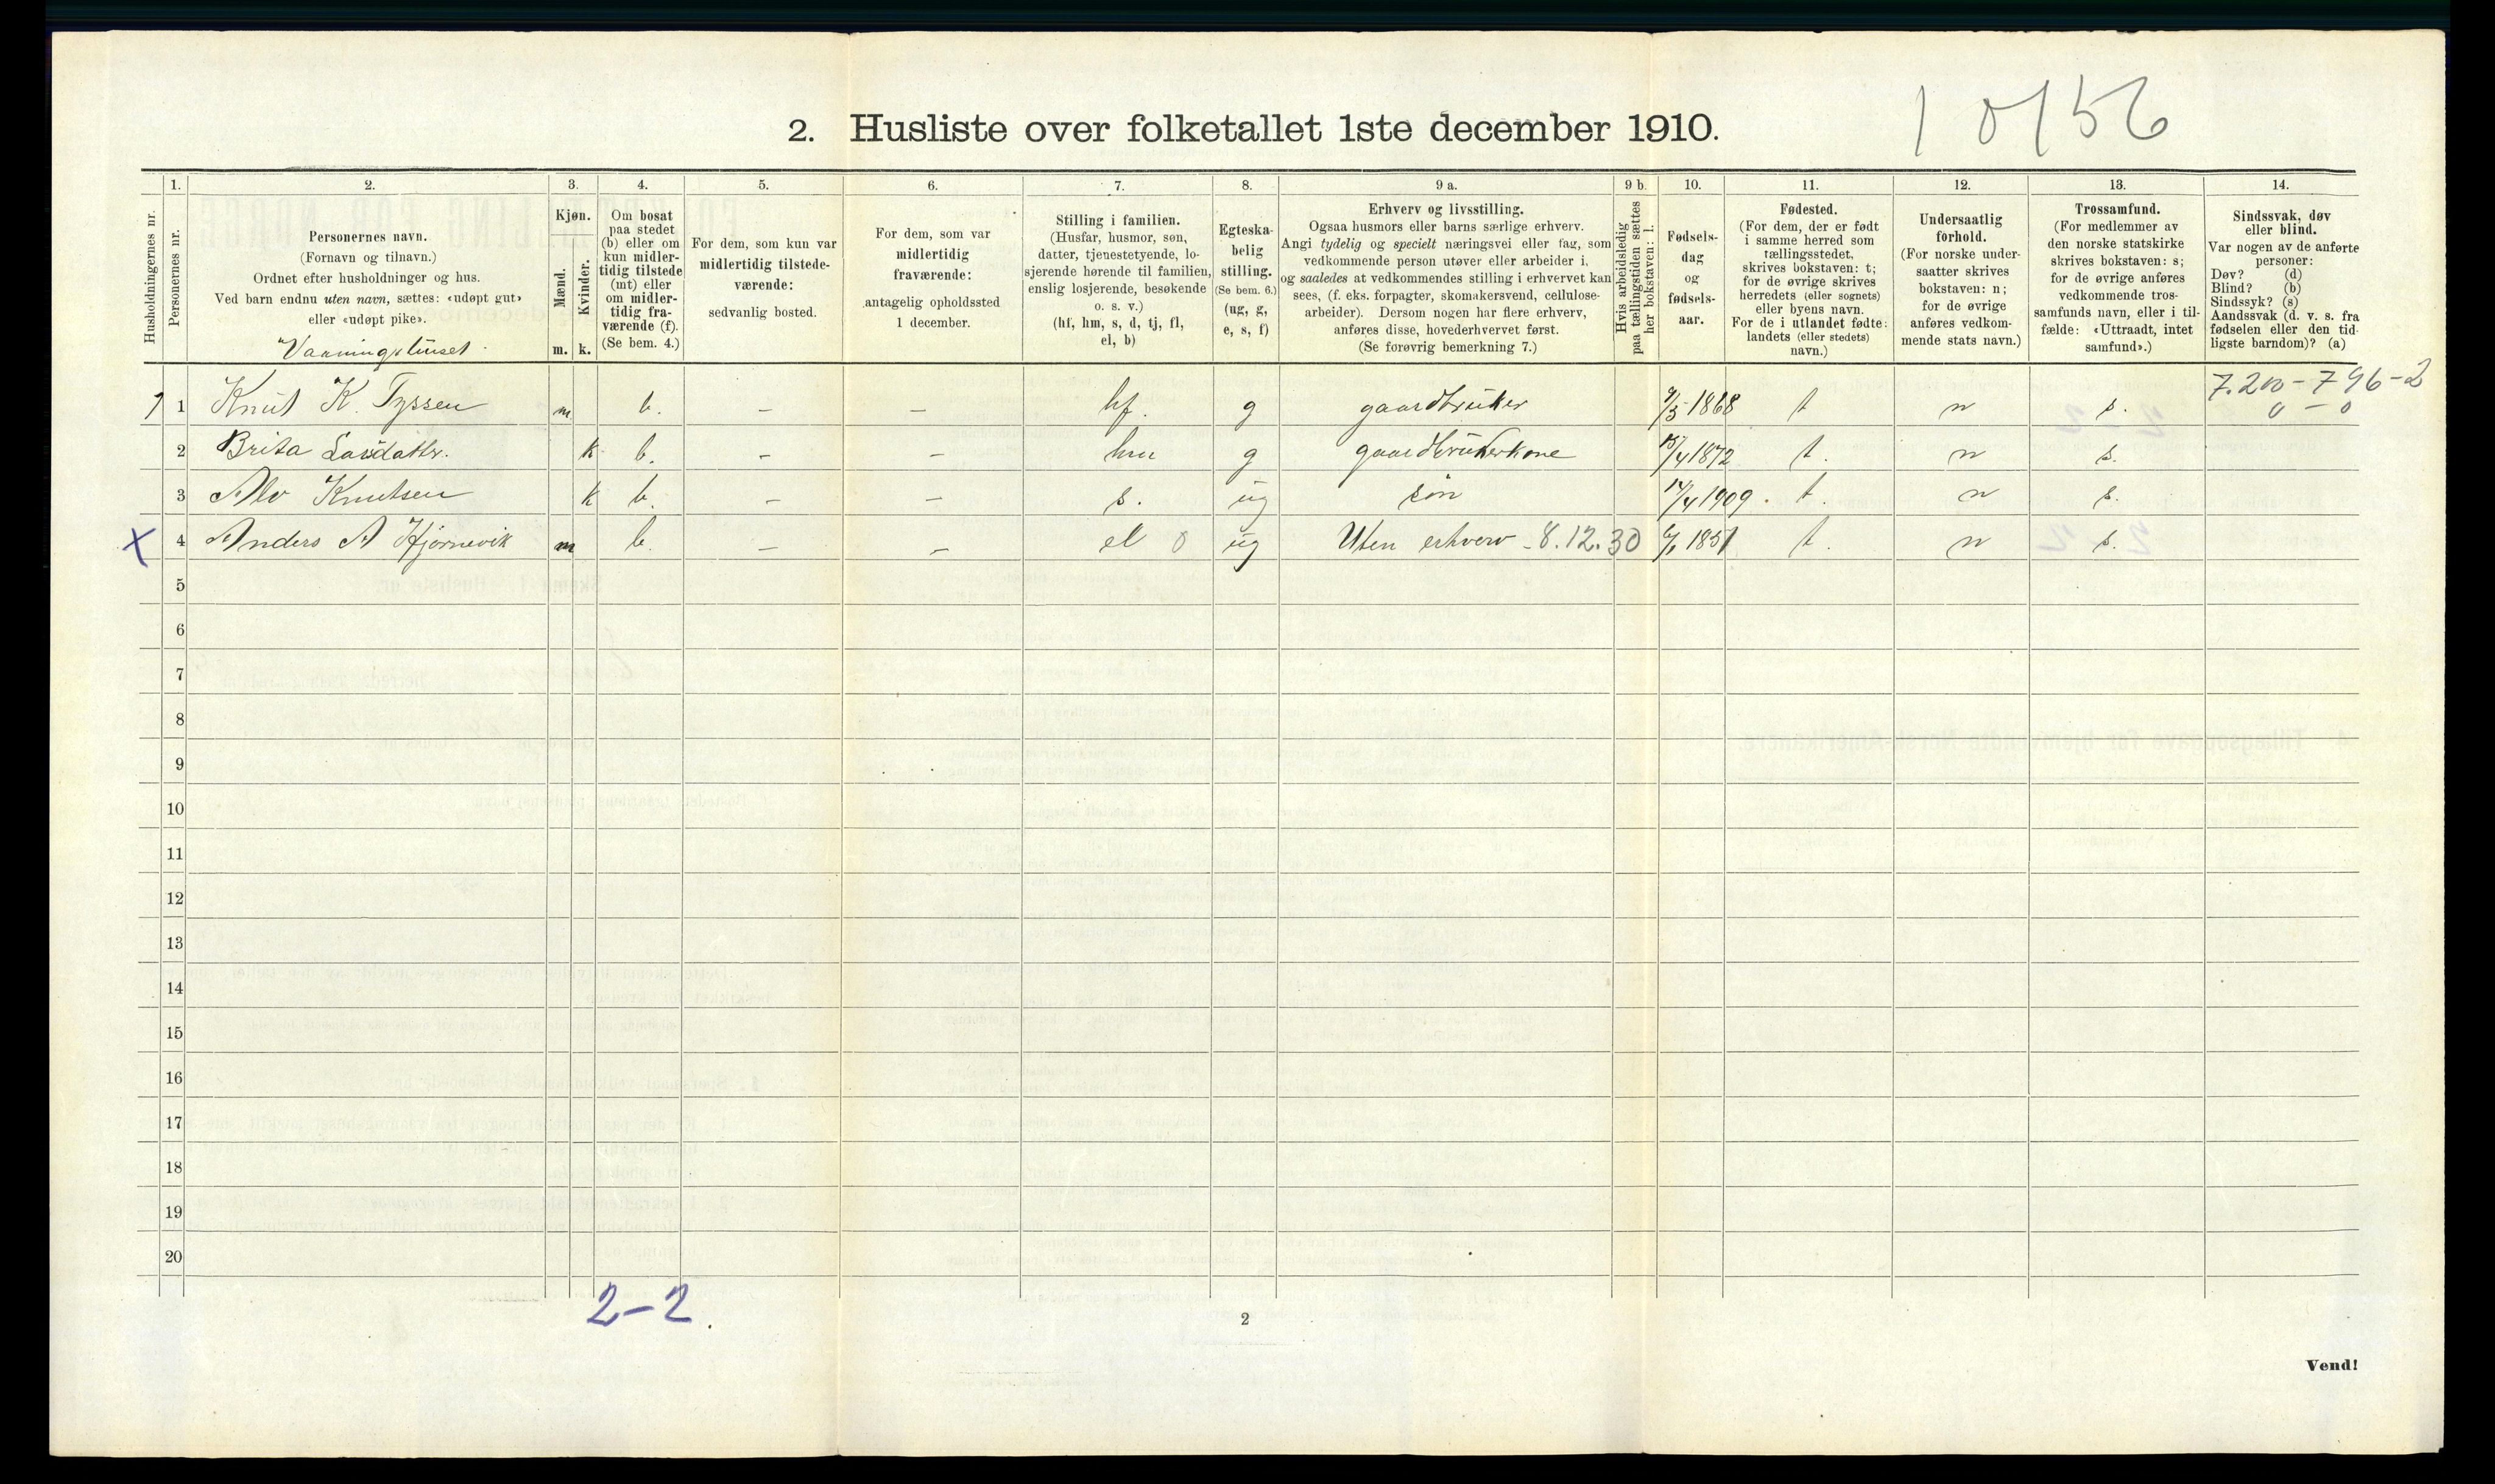 10156
2. Husliste over folketallet 1ste december 1910.
Husholdningernes nr.
1. Personernes nr.
2. Personernes navn.
(Fornavn og tilnavn.)
Ordnet efter husholdninger og hus.
Ved barn endnu uten navn, sættes: «udøpt gut»
eller «udøpt pike».
Vaaningshuset
3. Kjøn.
Mænd. m.
Kvinder. k.
4. Om bosat
paa stedet
(b) eller om
kun midler-
tidig tilstede
(mt) eller
om midler-
tidig fra-
værende (f).
(Se bem. 4.)
5. For dem, som kun var
midlertidig tilstede-
værende:
sedvanlig bosted.
6. For dem, som var
midlertidig
fraværende:
antagelig opholdssted
1 december.
7. Stilling i familien.
(Husfar, husmor, søn,
datter, tjenestetyende, lo-
sjerende hørende til familien,
enslig losjerende, besøkende
o. s. v.)
(hf, hm, s, d, tj, fl,
el, b)
8. Egteska-
belig
stilling.
(Se bem. 6.)
(ug, g,
e, s, f)
9 a. Erhverv og livsstilling.
Ogsaa husmors eller barns særlige erhverv.
Angi tydelig og specielt næringsvei eller fag, som
vedkommende person utøver eller arbeider i,
og saaledes at vedkommendes stilling i erhvervet kan
sees, (f. eks. forpagter, skomakersvend, cellulose-
arbeider). Dersom nogen har flere erhverv,
anføres disse, hovederhvervet først.
(Se forøvrig bemerkning 7.)
9 b. Hvis arbeidsledig
paa tællingstiden sættes
her bokstaven: l.
10. Fødsels-
dag
og
fødsels-
aar.
11. Fødested.
(For dem, der er født
i samme herred som
tællingsstedet,
skrives bokstaven: t;
for de øvrige skrives
herredets (eller sognets)
eller byens navn.
For de i utlandet fødte:
landets (eller stedets)
navn.)
12. Undersaatlig
forhold.
(For norske under-
saatter skrives
bokstaven: n;
for de øvrige
anføres vedkom-
mende stats navn.)
13. Trossamfund.
(For medlemmer av
den norske statskirke
skrives bokstaven: s;
for de øvrige anføres
vedkommende tros-
samfunds navn, eller i til-
fælde: «Uttraadt, intet
samfund».)
14. Sindssvak, døv
eller blind.
Var nogen av de anførte
personer:
Døv? (d)
Blind? (b)
Sindssyk? (s)
Aandssvak (d. v. s. fra
fødselen eller den tid-
ligste barndom)? (a)
7.200-796-2
0 - 0
1 1 Knut K. Tyssen m b. - - hf. g gaardbruker 1868 t n s.
2 Brita k b. - - hm g gaardbrukerkone 15/4 1872 t. n s.
3 Alv Knutsen k b. - - s. ug søn 14/4 1909. t. n s.
X 4 Anders A Hjørnevik m b. - - el 0 ug Uten erhverv - 8.12.30 1851 t. n s.
5
6
7
8
9
10
11
12
13
14
15
16
17
18
19
20
2-2.
2
Vend!